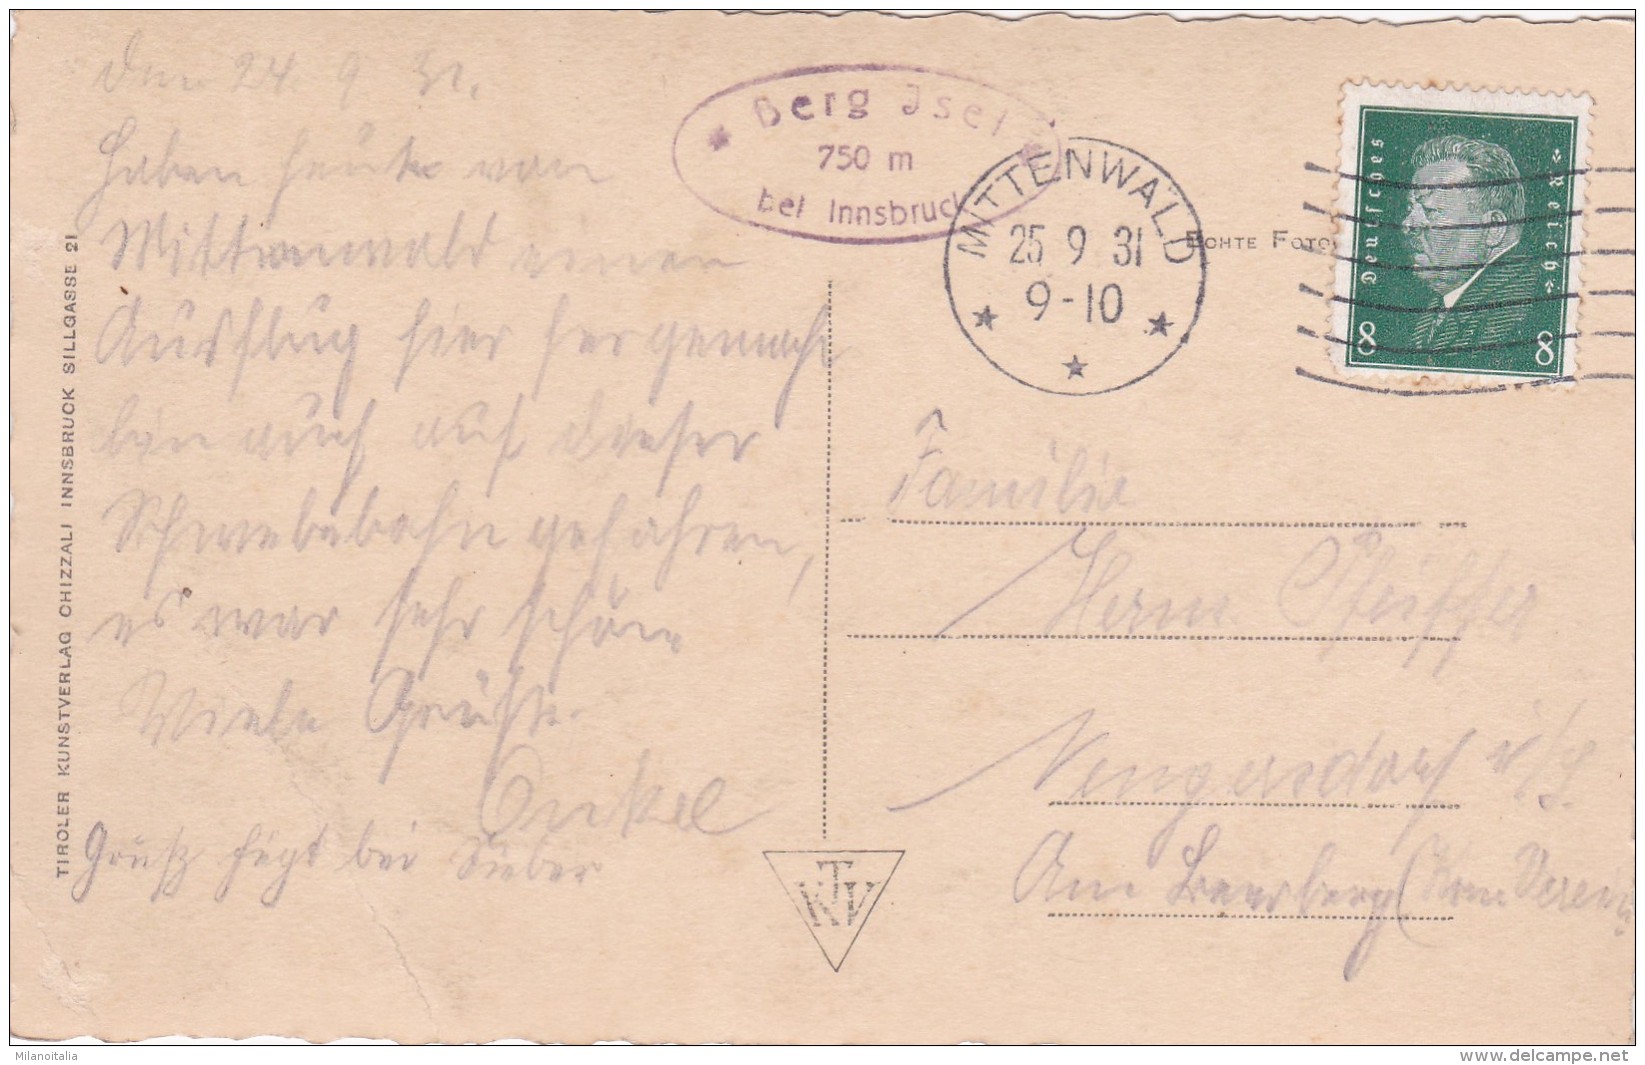 den 24. 9. 31.
Haben heute von
Mittenwald einen
Ausflug hier her gemacht
bin auch auf dieser
Schwebebahn gefahren,
es war sehr schön
Viele Grüße
Onkel
Gruß
TIROLER KUNSTVERLAG CHIZZALI INNSBRUCK SILLGASSE 21
Berg Isel
750 m
bei Innsbruck
MITTENWALD
25 9 31
9-10
ECHTE FOTO
Deutsches Reich
8 8
TKV
Familie
Herm Pfeiffer
Neugersdorf i/S.
Am
Milanoitalia
www.delcampe.net